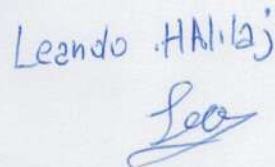 Leando .HAlilaj
Leo